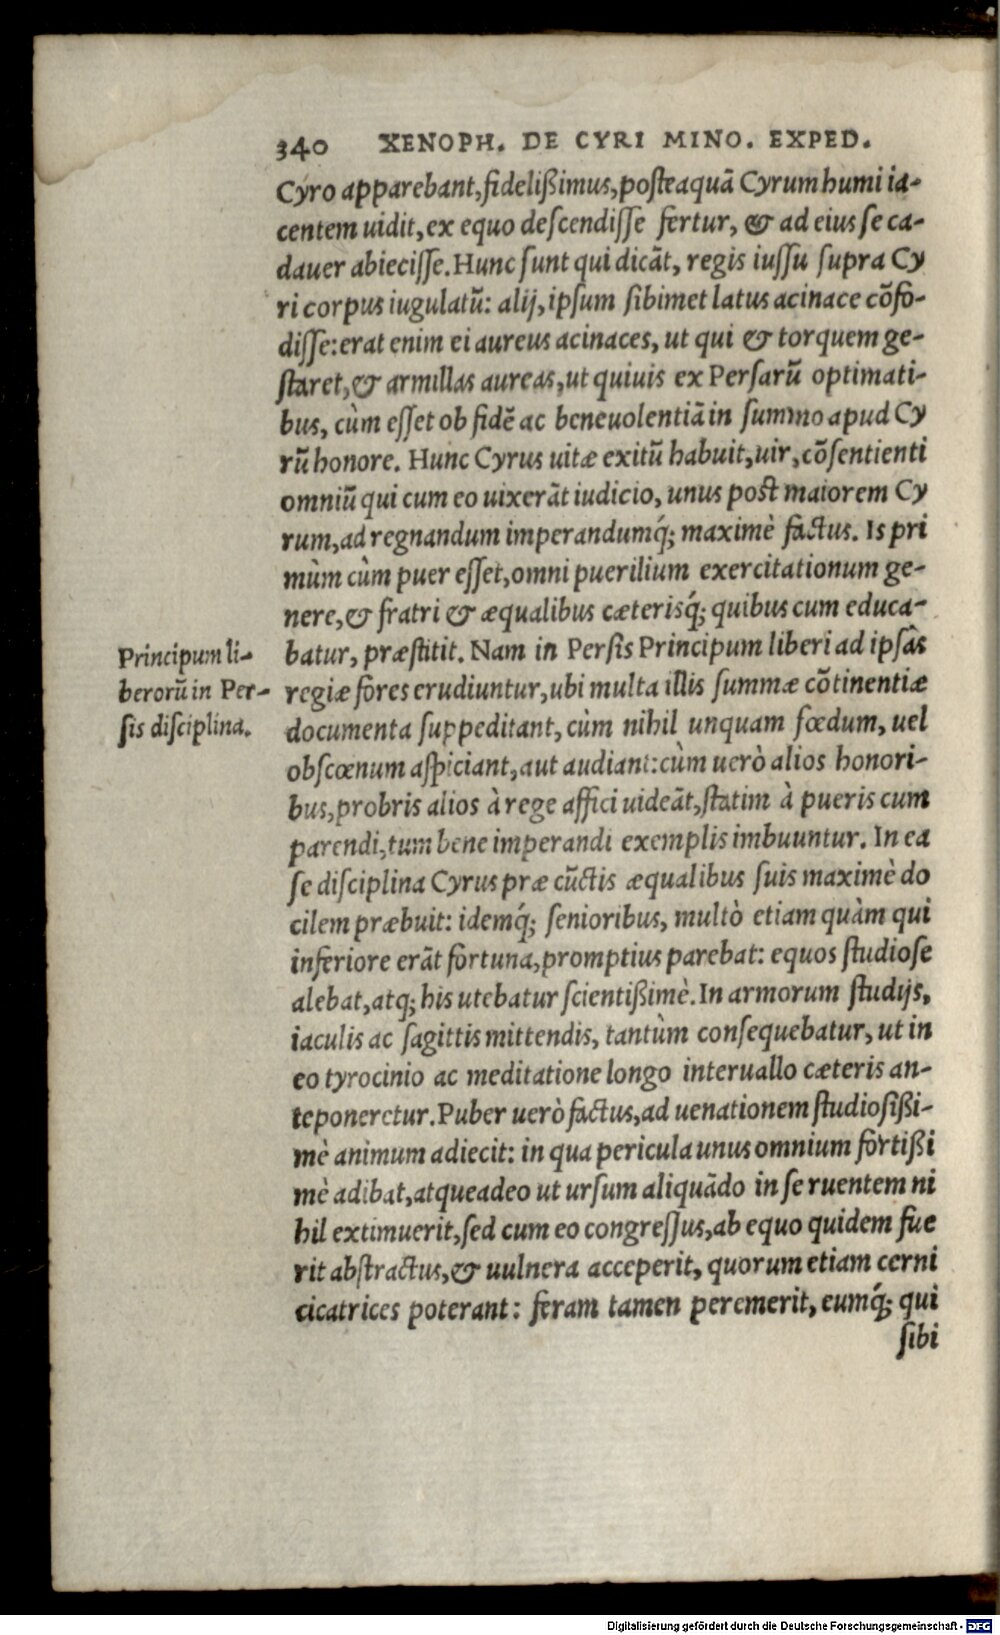 340 XENOPH. DE CYRI MINO. EXPED.
Cyro apparebant, fidelißimus, posteaquā Cyrum humi ia-
centem uidit, ex equo descendisse fertur, & ad eius se ca-
dauer abiecisse. Hunc sunt qui dicāt, regis iussu supra Cy
ri corpus iugulatū: alij, ipsum sibimet latus acinace cōfo-
disse: erat enim ei aureus acinaces, ut qui & torquem ge-
staret, & armillas aureas, ut quiuis ex Persarū optimati-
bus, cùm esset ob fidē ac beneuolentiā in summo apud Cy
rū honore. Hunc Cyrus uitæ exitū habuit, uir, cōsentienti
omniū qui cum eo uixerāt iudicio, unus post maiorem Cy
rum, ad regnandum imperandumq́; maximè factus. Is pri
mùm cùm puer esset, omni puerilium exercitationum ge-
nere, & fratri & æqualibus cæterisq́; quibus cum educa-
batur, præstitit. Nam in Persis Principum liberi ad ipsas
regiæ fores erudiuntur, ubi multa illis summæ cōtinentiæ
documenta suppeditant, cùm nihil unquam fœdum, uel
obscœnum aspiciant, aut audiant: cùm uerò alios honori-
bus, probris alios à rege affici uideāt, statim à pueris cum
parendi, tum bene imperandi exemplis imbuuntur. In ea
se disciplina Cyrus præ cūctis æqualibus suis maximè do
cilem præbuit: idemq́; senioribus, multò etiam quàm qui
inferiore erāt fortuna, promptius parebat: equos studiose
alebat, atq; his utebatur scientißimè. In armorum studijs,
iaculis ac sagittis mittendis, tantùm consequebatur, ut in
eo tyrocinio ac meditatione longo interuallo cæteris an-
teponeretur. Puber uerò factus, ad uenationem studiosißi-
mè animum adiecit: in qua pericula unus omnium fortißi
mè adibat, atque adeo ut ursum aliquādo in se ruentem ni
hil extimuerit, sed cum eo congressus, ab equo quidem fue
rit abstractus, & uulnera acceperit, quorum etiam cerni
cicatrices poterant: feram tamen peremerit, eumq́; qui
sibi
Principum li-
berorū in Per-
sis disciplina.
Digitalisierung gefördert durch die Deutsche Forschungsgemeinschaft - DFG